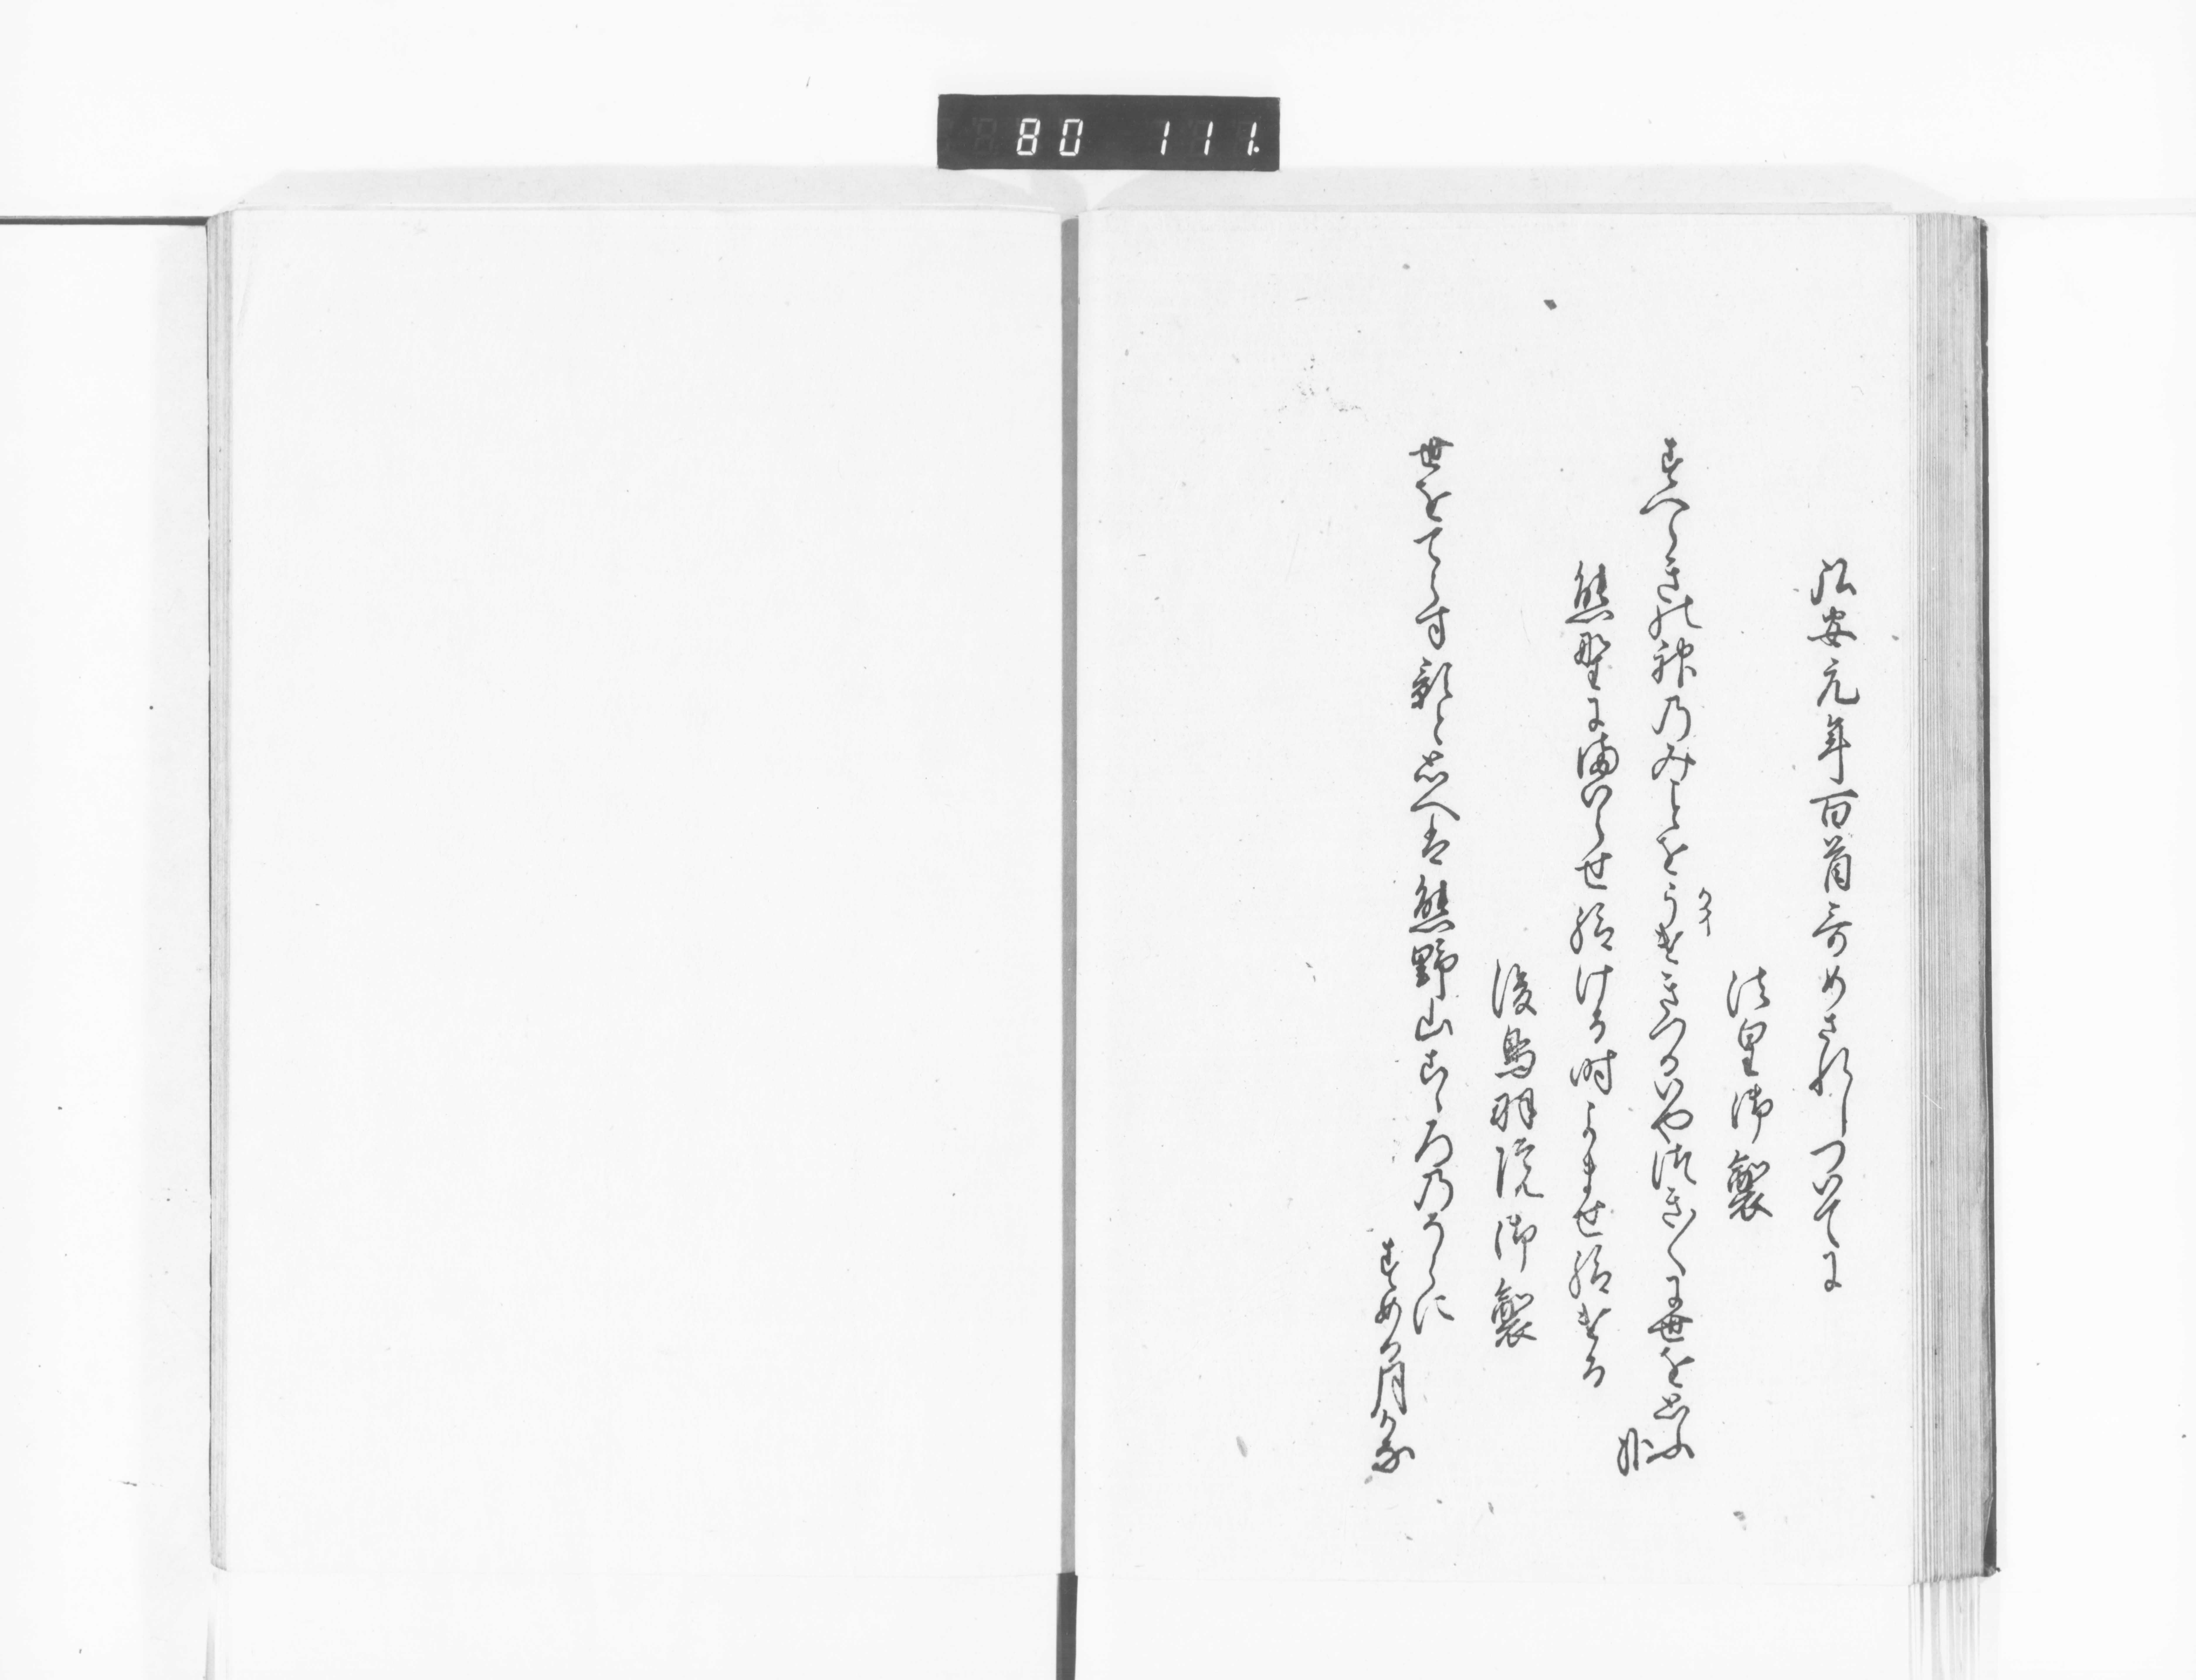 80 111.
弘安元年百首哥めされしついてに
法皇御製
すへらきの神のみことをうけきつるいやつき〳〵に世を思ふ
哉
熊野にまいらせ給ける時よませ給ける
後鳥羽院御製
世をてらす影と思へは熊野山こゝろのそらに
すめる月かな